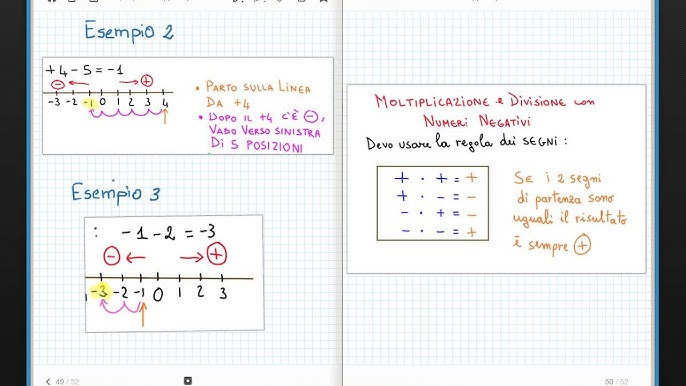 Esempio 2
+4 - 5 = -1
- ← → +
-3 -2 -1 0 1 2 3 4
• PARTO SULLA LINEA
DA +4
• DOPO IL +4 C'È -,
VADO VERSO SINISTRA
DI 5 POSIZIONI
Esempio 3
: -1 - 2 = -3
- ← → +
-3 -2 -1 0 1 2 3
49 / 52
MOLTIPLICAZIONE e DIVISIONE con
NUMERI NEGATIVI
Devo usare la regola dei SEGNI :
+ · + = +
+ · - = -
- · + = -
- · - = +
SE i 2 segni
di partenza sono
uguali il risultato
è sempre +
50 / 52